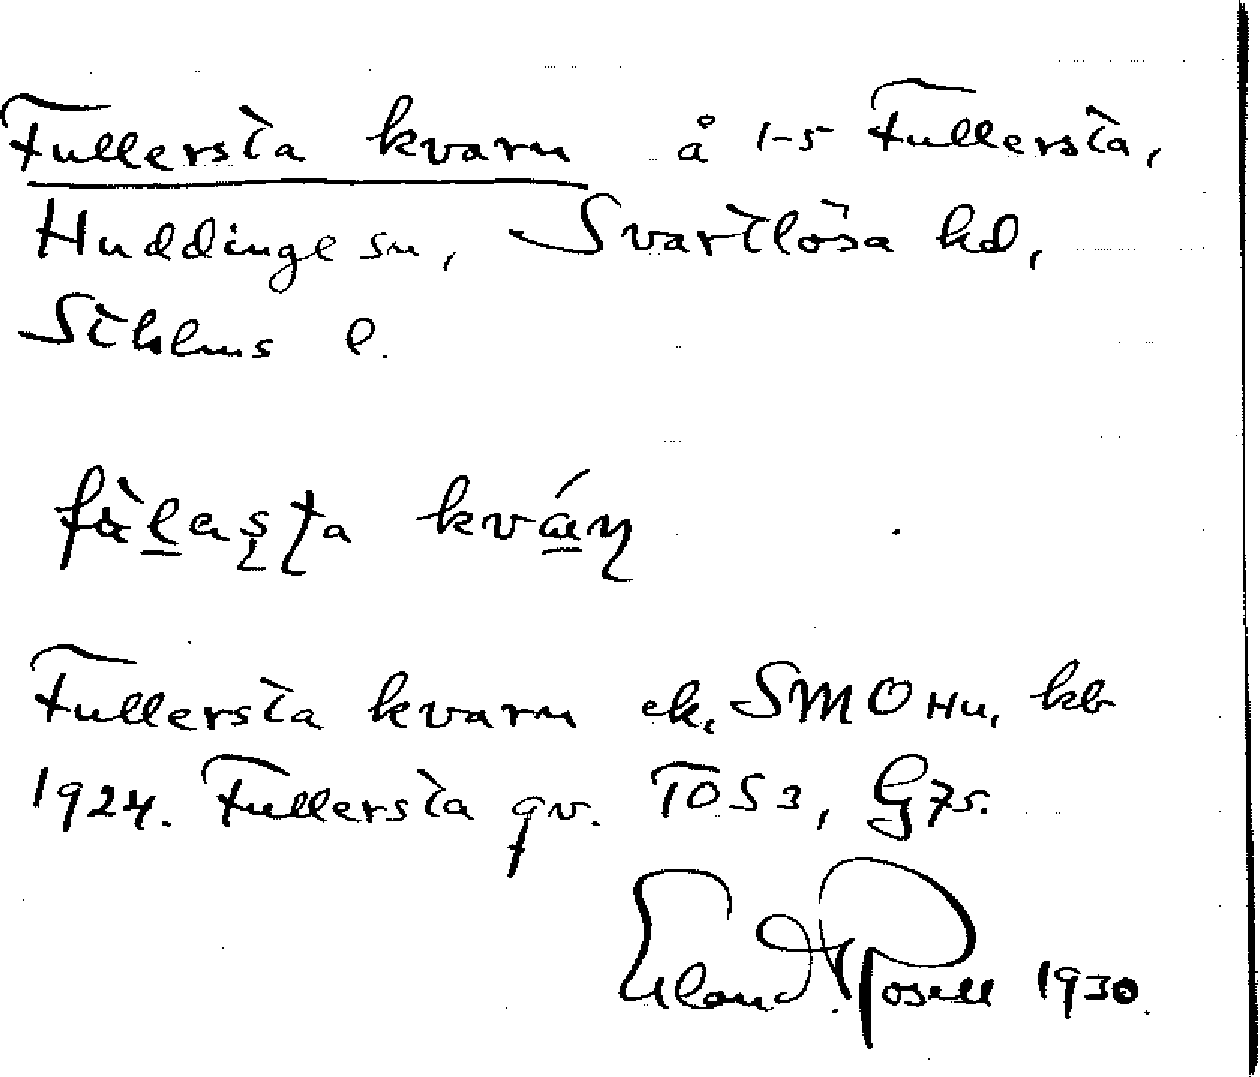 Fullersta kvarn å 1-5 Fullersta,
Huddinge sn, Svartlösa hd,
Sthlms l.
kvarn
Fullersta kvarn ek. SMO Hu. kb
1924. Fullersta qv. TOS3, G75.
Erland Rosell 1930.